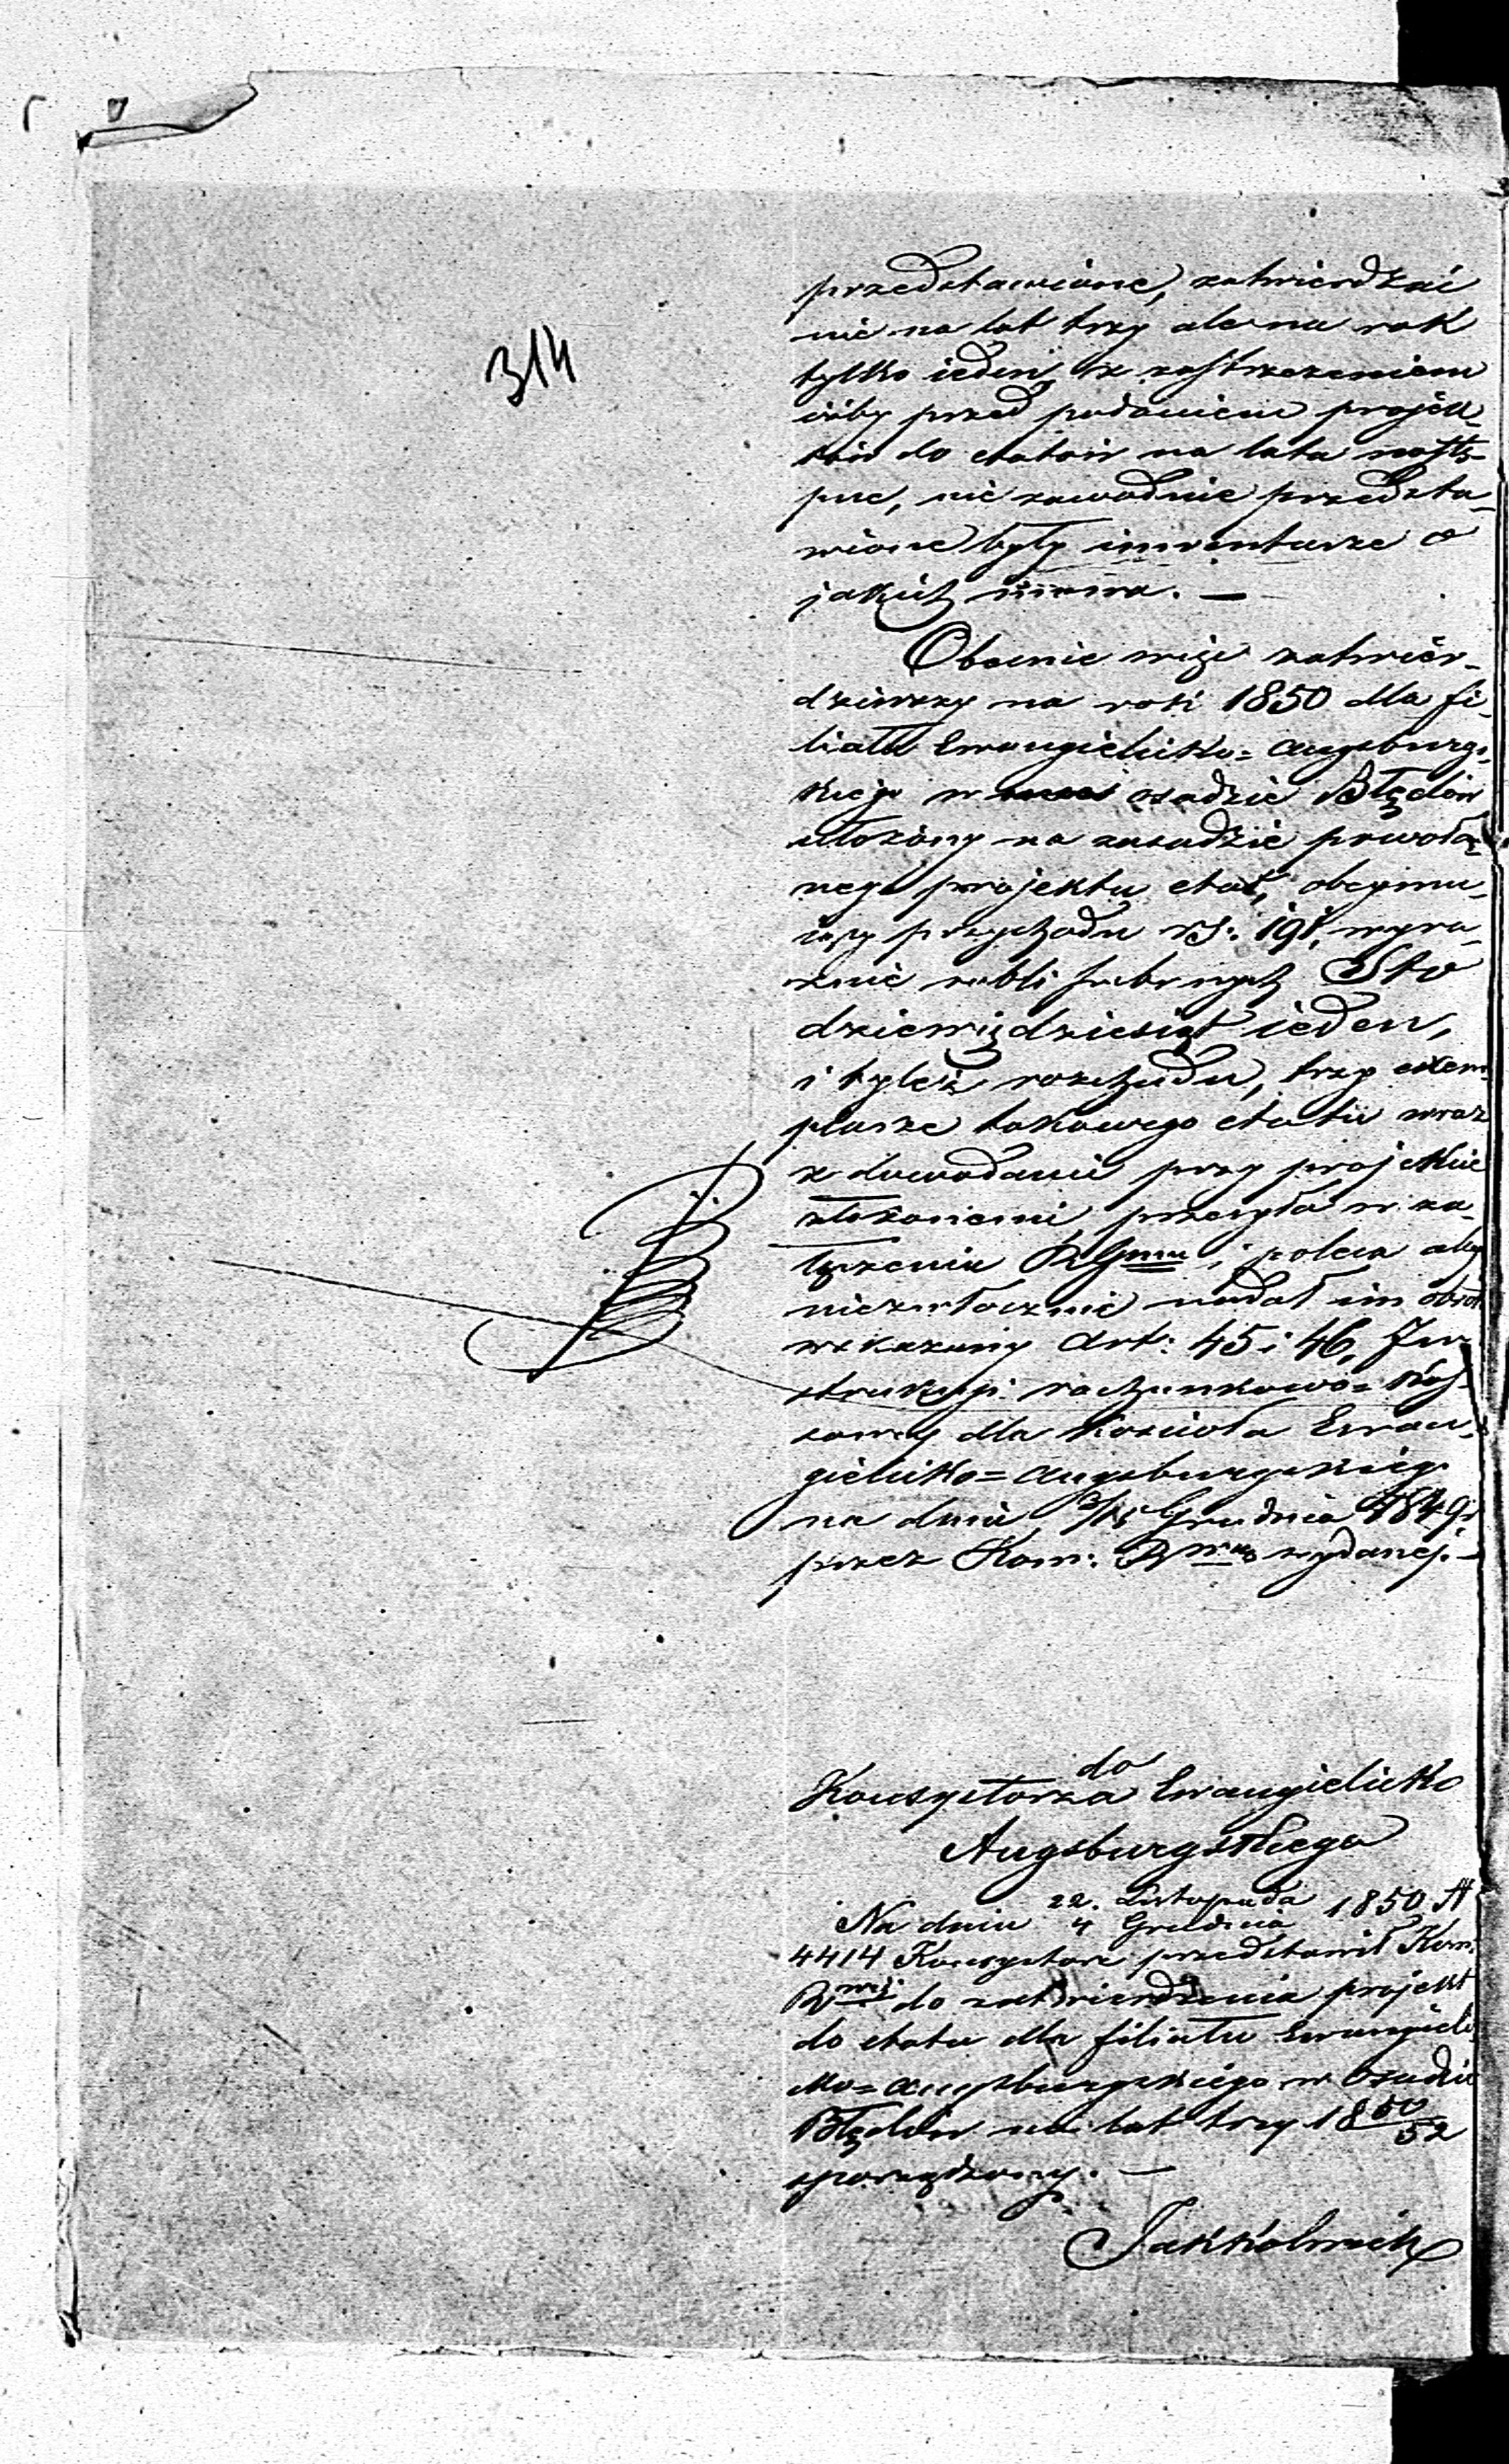 314
przedstawione, zatwierdzać
nie na lat trzy ale na rok
tylko ieden, z zastrzeżeniem
iżby przed podaniem projek-
tów do etatów na lata nastę-
pne, nie zawodnie przedsta-
wione były inwentarze o
jakich mowa. —
Obecnie więc zatwier-
dziwszy na rok 1850 dla fi-
liału Ewangielicko=Augsburgs-
kiego w osadzie Błędów
ułożony na zasadzie powoła-
nego projektu etat, obejmu-
iący przychodu rs: 191, wyra-
znie rubli srebrnych Sto
dziewiędziesiąt ieden,
i tyleż rozchodu, trzy exem-
plarze takowego etatu wraz
z dowodami przy projekcie
złożonemi, przesyła w za-
łączeniu i poleca aby
niezwłocznie nadał im obrót
wskazany Art: 45 i 46, In-
strukcyi rachunkowo=Kas-
sowey dla Kościoła Ewan-
gielicko=Augsburgskiego
na dniu 3/15 Grudnia 1849 r.
przez Kom: Rz wydanej. —
do
Konsystorza Ewangielicko
Augsburgskiego
Na dniu 22. Listopada / 4 Grudnia 1850 N
4414 Konsystorz przedstawił Kom:
Rz do zatwierdzenia projekt
do etatu dla filiału Ewangielic-
ko=Augsburgskiego w Osadzie
Błędów na lat trzy 1850/52
sporządzony. —